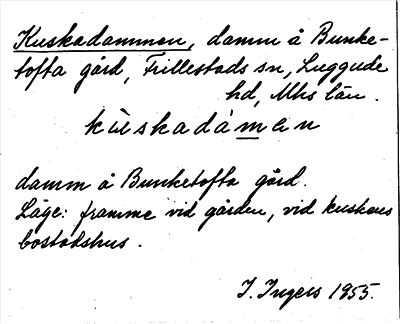 Kuskadammen, damm å Bunke-
tofta gård, Frillestads sn, Luggude
hd, Mhs län.
kùskadámen
damm å Bunketofta gård.
Läge: framme vid gården, vid kuskens
bostadshus.
I. Ingers 1955.